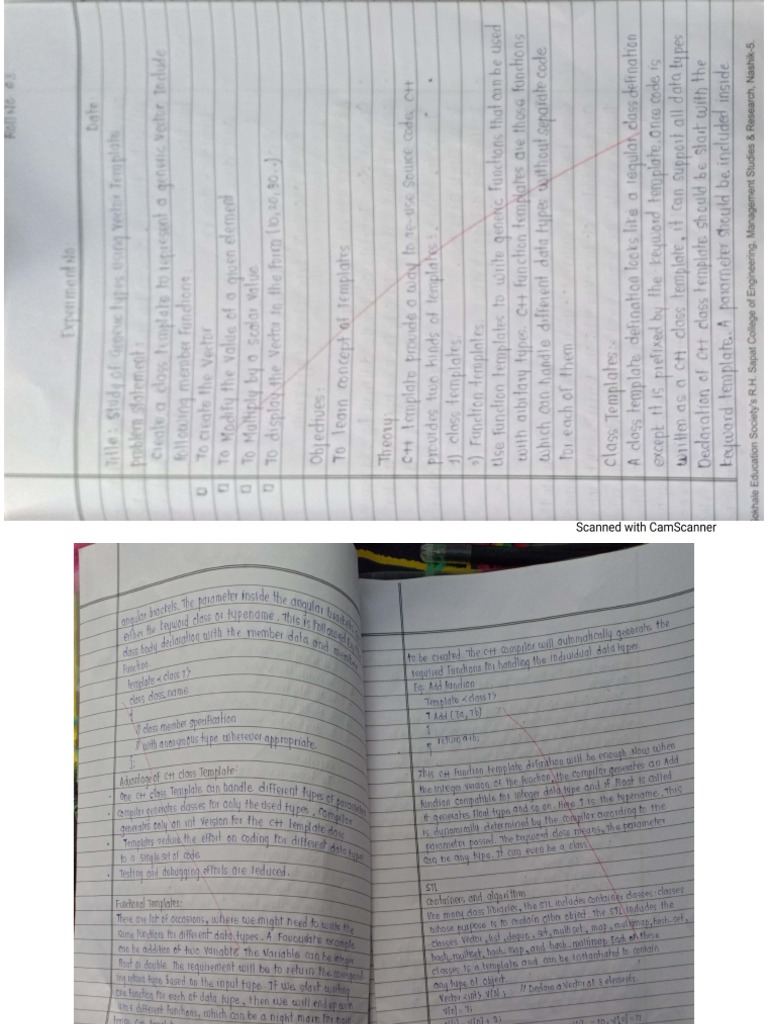 Roll No 03
Experiment No
Date
Title: Study of Generic types using Vector Template
problem statement:
create a class template to represent a generic vector Include
following member functions
□ To create the Vector
□ To Modify the value of a given element
□ To Multiply by a scalar value
□ To display the Vector in the form (10, 20, 30..)
Objectives:
To learn concept of Templates
Theory:
C++ template provide a way to re-use source code. C++
provides two kinds of templates:
1) class templates
2) Function templates
Use function templates to write generic functions that can be used
with arbitary types. C++ function templates are those functions
which can handle different data types without separate code
for each of them
Class Templates:-
A class template defination looks like a regular class defination
except it is prefixed by the keyword template once code is
written as a C++ class template, it can support all data types
Declaration of C++ class template should be start with the
keyword template. A parameter should be included inside
Gokhale Education Society's R.H. Sapat College of Engineering, Management Studies & Research, Nashik-5.
Scanned with CamScanner
angular brackets. The parameter inside the angular
either the keyword class or typename. This is followed
class body declaration with the member data and member
Function.
Template <class T>
class class_name
{
// class member specification
// with anonymous type wherever appropriate.
};
Advantage of C++ class Template:
• One C++ class Template can handle different types of parameters
• Compiler generates classes for only the used types. Compiler
generates only an int version for the C++ template class
• Templates reduce the effort on coding for different data types
to a single set of code
• Testing and debugging efforts are reduced.
Functional Templates:
There are lot of occasions, where we might need to write the
same functions for different data types. A Favourate example
can be addition of two variable. The variable can be integer
float or double. The requirement will be to return the
return type based on the input type. If we start writing
one function for each of data type, then we will end up with
different functions, which can be a night mare for
to be created. The C++ compiler will automatically generate the
required Functions for handling the individual data types
Eg: Add function
Template <class T>
T Add (Ta, Tb)
{
return a+b;
}
This C++ function template defination will be enough. Now when
the integer version of the function, the compiler generates an Add
function compatible for integer data type and if float is called
it generates float type and so on. Here T is the typename. This
is dynamically determined by the compiler according to the
parameter passed. The keyword class means, the parameter
can be any type. It can even be a class.
STL
Containers and algorithm
like many class libraries, the STL includes container classes: classes
whose purpose is to contain other object. The STL includes the
classes vector, list, deque, set, multiset, map, multimap, hash-set,
hash_multiset, hash_map, and hash_multimap. Each of these
classes is a template and can be instantiated to contain
any type of object
Vector <int> v(3); // Declare a vector of 3 elements.
v[0] = 7;